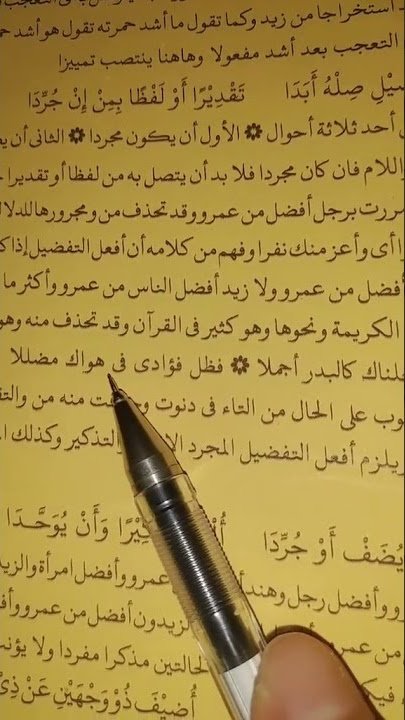 استخراجا من زيد وكما تقول ما أشد حمرته تقول هو أشد
التعجب بعد أشد مفعولا وهاهنا ينتصب تمييزا
صِلْهُ أَبَدَا تَقْدِيْرًا أَوْ لَفْظًا بِمِنْ إِنْ جُرِّدَا
أحد ثلاثة أحوال ۞ الأول أن يكون مجردا ۞ الثانى أن
اللام فان كان مجردا فلا بد أن يتصل به من لفظا أو تقديرا
مررت برجل أفضل من عمرو وقد تحذف من ومجرورها للدلا
أى وأعز منك نفرا وفهم من كلامه أن أفعل التفضيل إذا
أفضل من عمرو ولا زيد أفضل الناس من عمرو وأكثر ما
الكريمة ونحوها وهو كثير فى القرآن وقد تحذف منه وهو
خلناك كالبدر أجملا ۞ فظل فؤادى فى هواك مضللا
على الحال من التاء فى دنوت منه من
يلزم أفعل التفضيل المجرد والتذكير وكذلك
يُضَفْ أَوْ جُرِّدَا وَأَنْ يُوَحَّدَا
وأفضل رجل وهند عمرو وأفضل امرأة
الزيدون أفضل من عمرو
من عمرو الحالتين مذكرا مفردا ولا
أُضِيْفَ ذُوْ وَجْهَيْنِ عَنْ ذِىْ